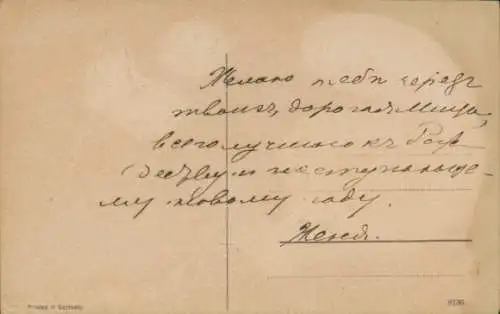 Желаю тебе через
твоихъ, дорогая Мица,
всего лучшаго къ Рож
деству и наступающе-
му новому году.
Женя.
Printed in Germany